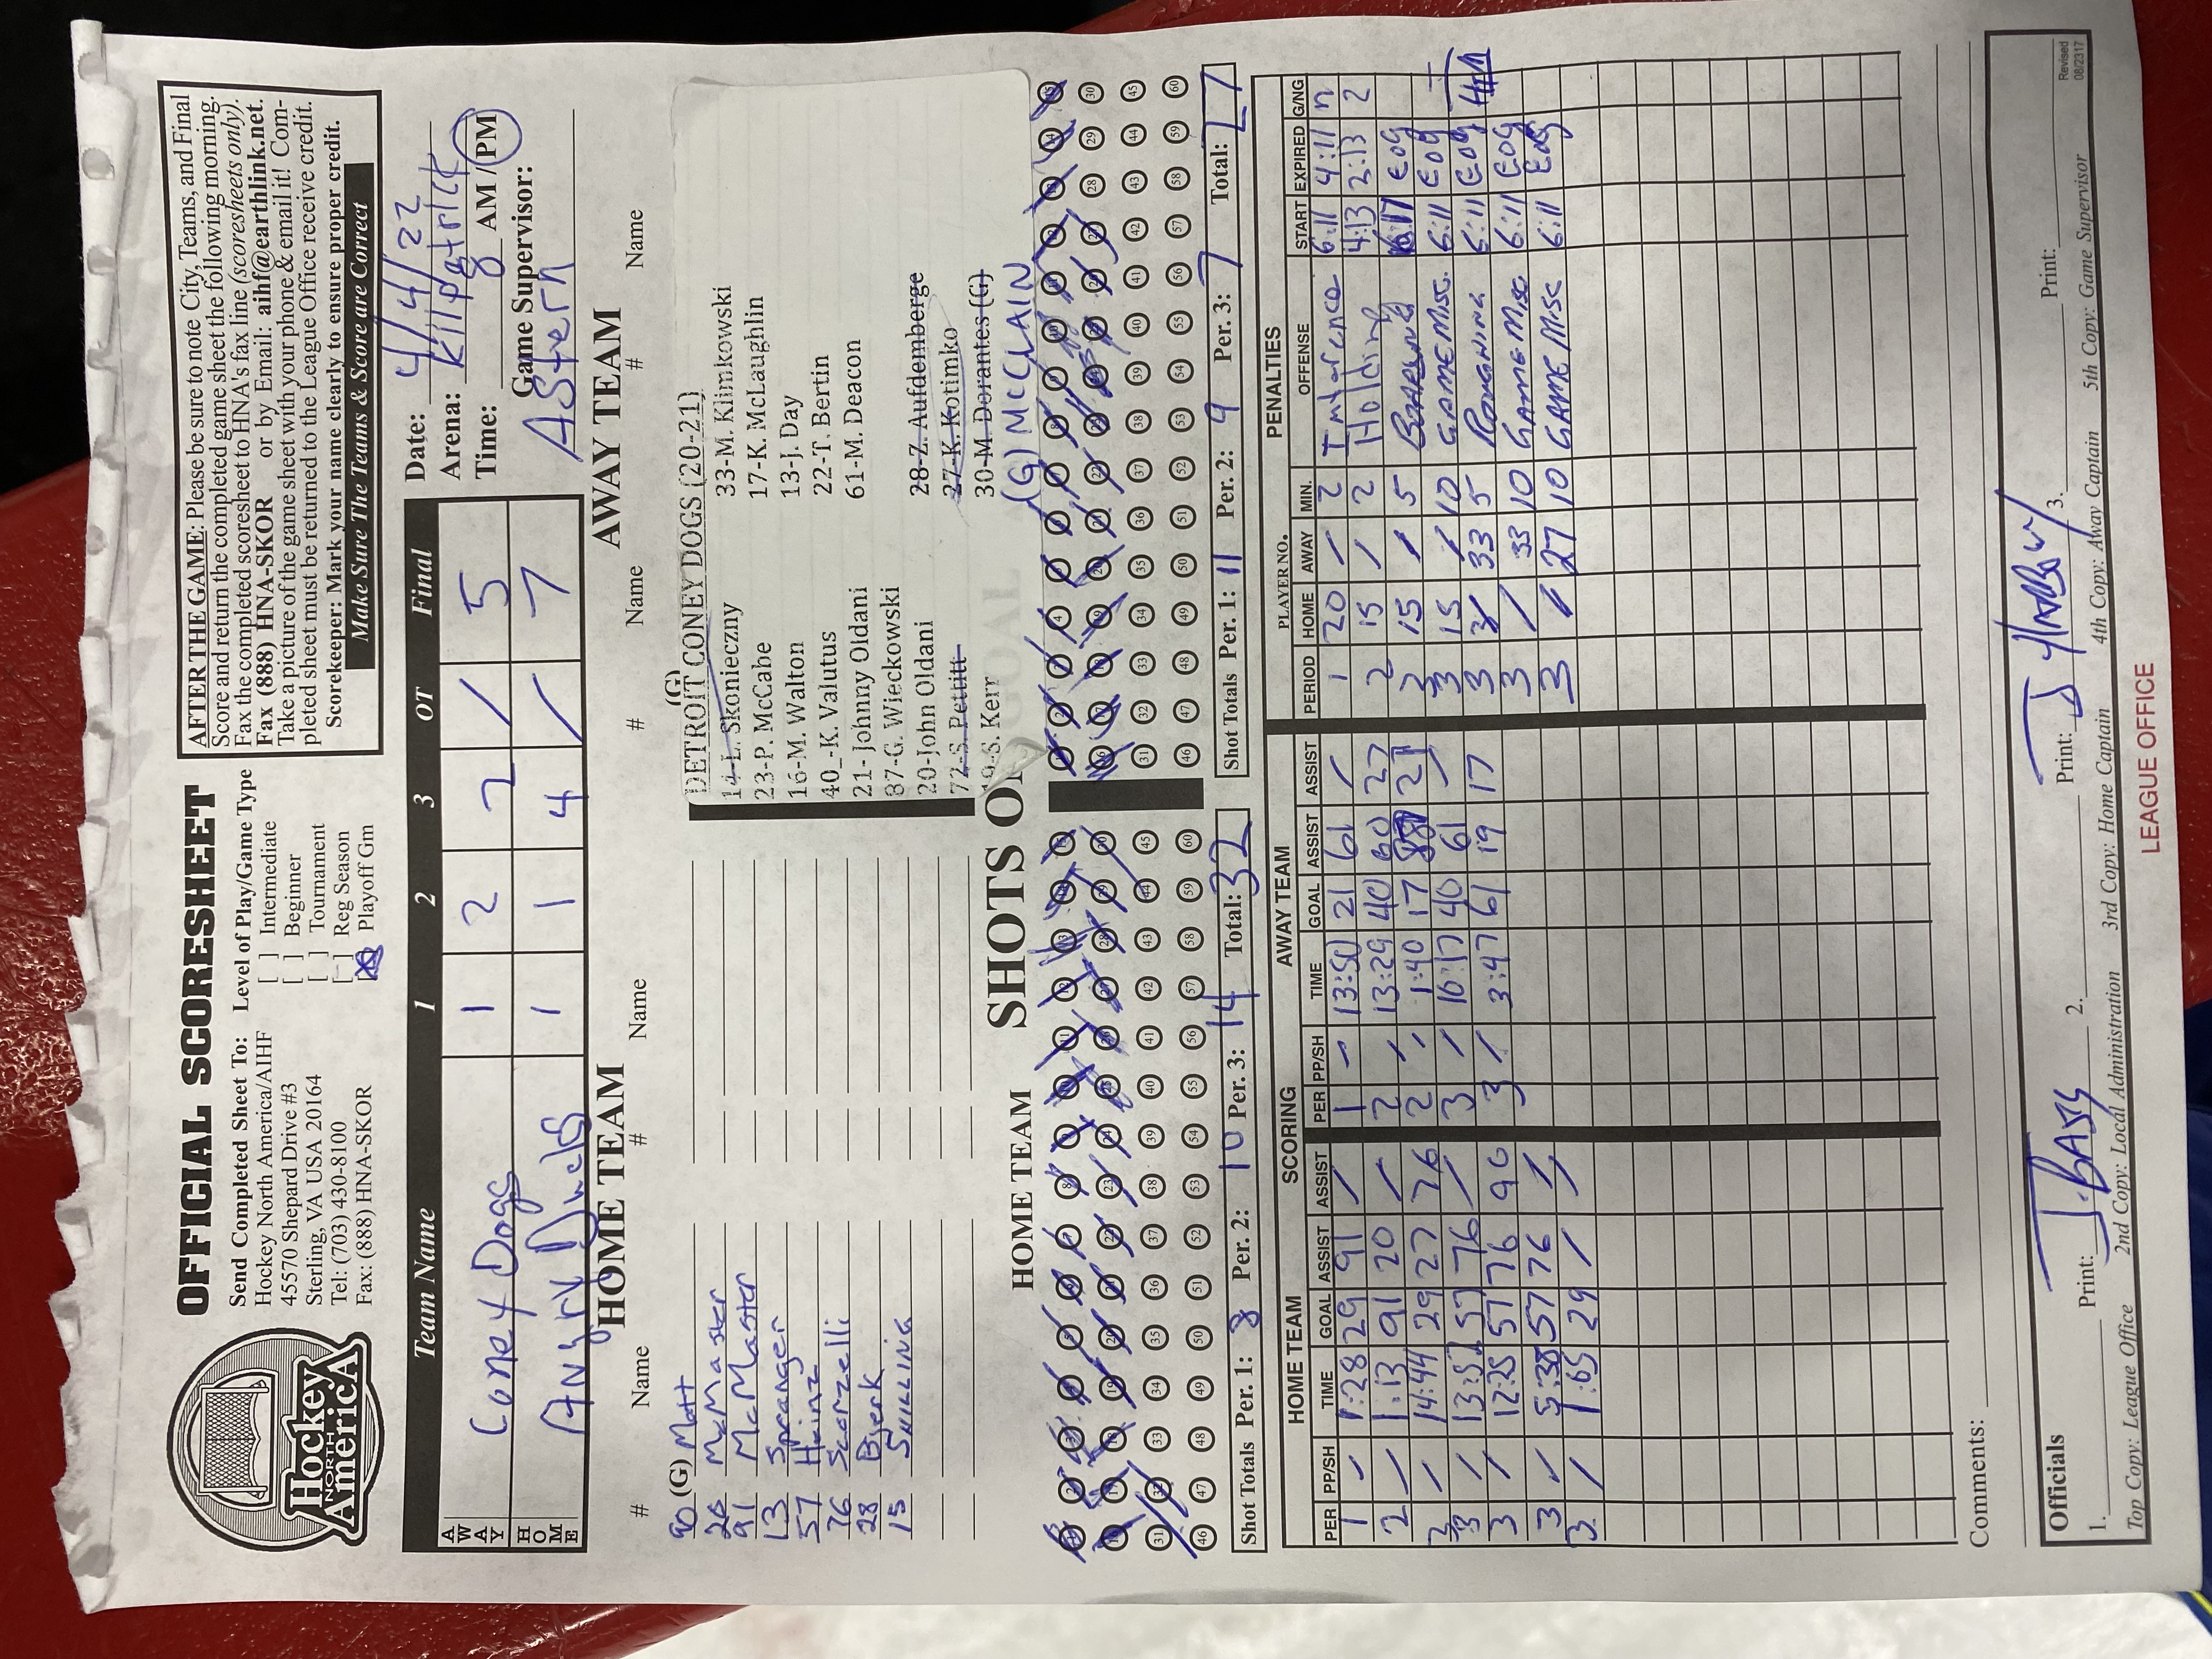 Hockey
NORTH
AmericA
OFFICIAL SCORESHEET
Send Completed Sheet To:
Hockey North America/AIHF
45570 Shepard Drive #3
Sterling, VA USA 20164
Tel: (703) 430-8100
Fax: (888) HNA-SKOR
Level of Play/Game Type
[ ] Intermediate
[ ] Beginner
[ ] Tournament
[ ] Reg Season
Playoff Gm
AFTER THE GAME: Please be sure to note City, Teams, and Final
Score and return the completed game sheet the following morning.
Fax the completed scoresheet to HNA's fax line (scoresheets only).
Fax (888) HNA-SKOR or by Email: aihf@earthlink.net.
Take a picture of the game sheet with your phone & email it! Com-
pleted sheet must be returned to the League Office receive credit.
Scorekeeper: Mark your name clearly to ensure proper credit.
Make Sure The Teams & Score are Correct
Team Name 1 2 3 OT Final
AWAY Coney Dogs 1 2 2 / 5
HOME Angry Ducks 1 1 4 / 7
Date: 4/4/22
Arena: Kilpatrick
Time: 8 AM / PM
Game Supervisor:
Astern
HOME TEAM
# Name # Name
90 (G) Mott
26 McMaster
91 McMaster
13 Spranger
57 Heinz
76 Scorzelli
28 Bjerk
15
AWAY TEAM
# Name # Name
DETROIT CONEY DOGS (20-21)
(G)
14-L. Skonieczny 33-M. Klimkowski
23-P. McCabe 17-K. McLaughlin
16-M. Walton 13-J. Day
40_-K. Valutus 22-T. Bertin
21- Johnny Oldani 61-M. Deacon
87-G. Wieckowski
20-John Oldani 28-Z. Aufdemberge
72-S. Pettitt 27-K. Kotimko
19-S. Kerr 30-M. Dorantes (G)
(G) MCCLAIN
HOME TEAM SHOTS O
Shot Totals Per. 1: 8 Per. 2: 10 Per. 3: 14 Total: 32
Shot Totals Per. 1: 11 Per. 2: 9 Per. 3: 7 Total: 27
SCORING
HOME TEAM
PER PP/SH TIME GOAL ASSIST ASSIST
1 - 1:28 29 91 /
2 / 1:13 91 20 /
3 / 14:44 29 27 76
3 / 13:51 57 76 /
3 / 12:25 57 76 90
3 / 5:38 57 76 /
3 / 1:05 29 / /
AWAY TEAM
PER PP/SH TIME GOAL ASSIST ASSIST
1 - 13:50 21 61 /
2 / 13:29 40 60 27
2 / 1:40 17 87 21
3 / 16:17 40 61 /
3 / 3:47 61 19 17
PENALTIES
PLAYER NO.
PERIOD HOME AWAY MIN. OFFENSE START EXPIRED G/NG
1 20 / 2 Interference 6:11 4:11 n
2 15 / 2 Holding 4:13 2:13 2
3 15 / 5 Boarding 6:11 EOG
3 15 / 10 GAME MISC. 6:11 EOG
3 / 33 5 Roughing 6:11 EOG
3 / 33 10 GAME MISC 6:11 EOG
3 / 27 10 GAME MISC 6:11 EOG
Comments:
Officials
1. Print: J. BASS 2. Print: 3. Print:
Top Copy: League Office 2nd Copy: Local Administration 3rd Copy: Home Captain 4th Copy: Away Captain 5th Copy: Game Supervisor
Revised
08/23/17
LEAGUE OFFICE